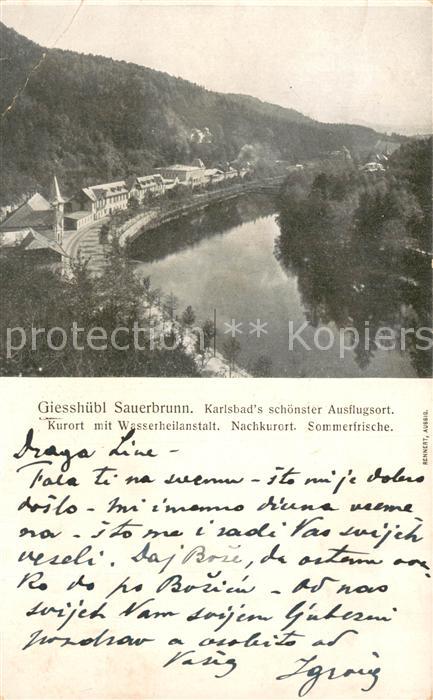 protection ** Kopierschutz
Giesshübl Sauerbrunn. Karlsbad's schönster Ausflugsort.
Kurort mit Wasserheilanstalt. Nachkurort. Sommerfrische.
RENNERT, AUSSIG.
Draga Line -
Fala ti na svemu - što mi je dobro
došlo - mi imamo divna vreme
na - što me i radi Vas svijeh
veseli. Daj Bože, da ostane ova-
ko do po Božiću - Od nas
svijeh Vam svijem ljubezni
pozdrav a osobito od
Vašeg